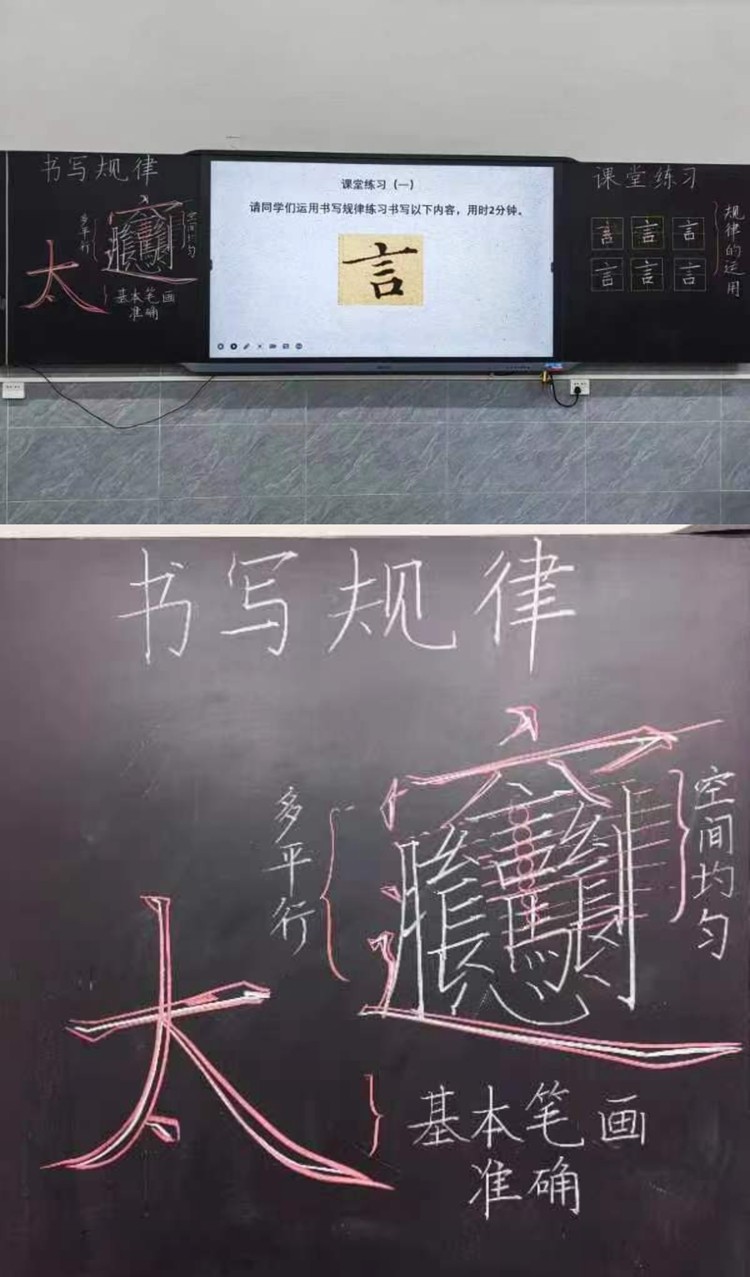 书写规律
多平行
𰻞
空间均匀
太
基本笔画
准确
课堂练习（一）
请同学们运用书写规律练习书写以下内容，用时2分钟。
言
课堂练习
言 言 言
言 言 言
规律的运用
书写规律
多平行
𰻞
空间均匀
太
基本笔画
准确